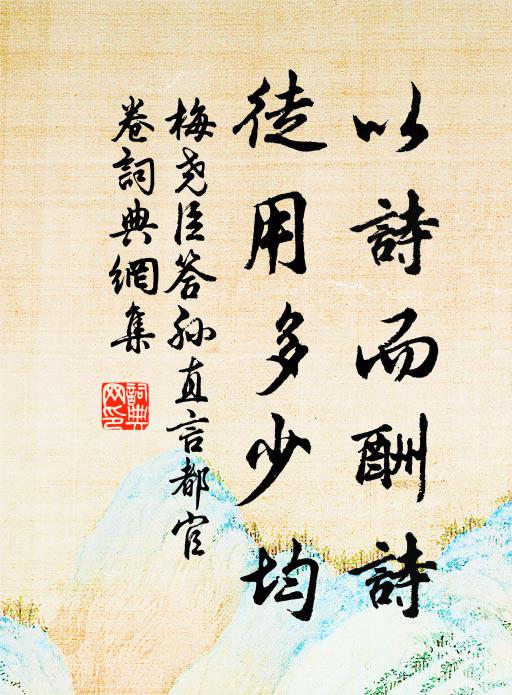 以詩而酬詩
徒用多少均
梅尧臣答孙直言都官
卷詞典網集
詞典網印